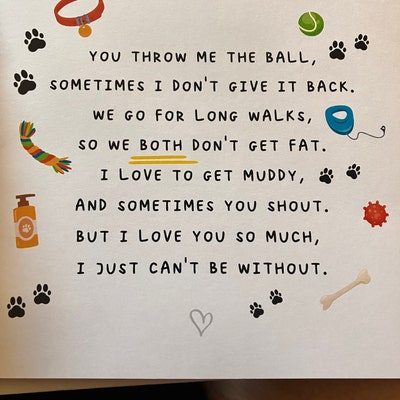 YOU THROW ME THE BALL,
SOMETIMES I DON'T GIVE IT BACK.
WE GO FOR LONG WALKS,
SO WE BOTH DON'T GET FAT.
I LOVE TO GET MUDDY,
AND SOMETIMES YOU SHOUT.
BUT I LOVE YOU SO MUCH,
I JUST CAN'T BE WITHOUT.